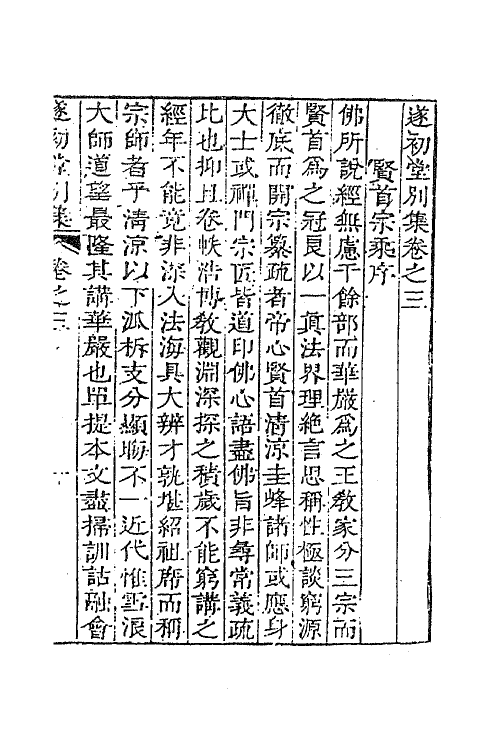 遂初堂別集卷之三
賢首宗乘序
佛所說經無慮千餘部而華嚴爲之王敎家分三宗而
賢首爲之冠良以一眞法界理絶言思稱性極談窮源
徹底而開宗纂疏者帝心賢首清涼圭峰諸師或應身
大士或禪門宗匠皆道印佛心語盡佛旨非尋常義疏
比也抑且卷帙浩博敎觀淵深探之積歲不能窮講之
經年不能竟非深入法海具大辨才孰堪紹祖席而稱
宗師者乎清涼以下派柝支分顯晦不一近代惟雪浪
大師道望最隆其講華嚴也單提本文盡掃訓詁融會
遂初堂別集 卷之三 十